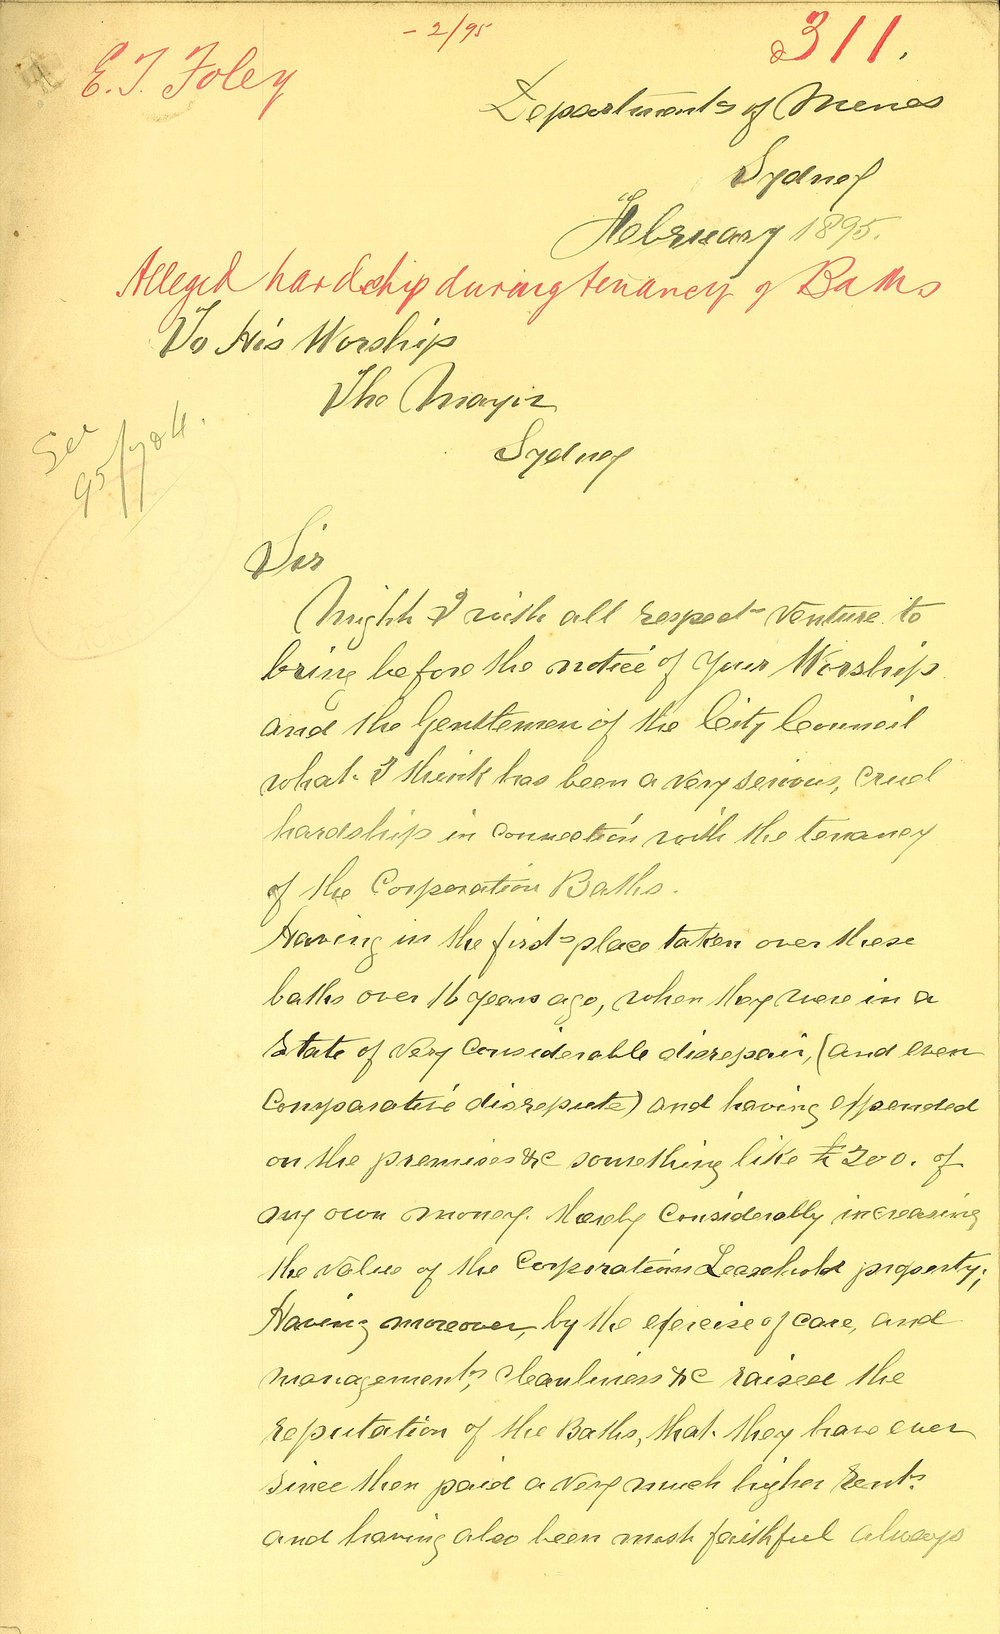 - 2/95
311.
E. T. Foley
Department of Mines
Sydney
February 1895.
Alleged hardship during tenancy of Baths
To His Worship
The Mayor
Sydney
See
95/784.
Sir
Might I with all respect venture to
bring before the notice of Your Worship
and the Gentlemen of the City Council
what I think has been a very serious, cruel
hardship in connection with the tenancy
of the Corporation Baths.
Having in the first place taken over these
baths over 16 years ago, when they were in a
state of very considerable disrepair, (and even
comparative disrepute) and having expended
on the premises &c something like £200. of
my own money. thereby considerably increasing
the value of the Corporations Leasehold property;
Having moreover, by the exercise of care, and
management, cleanliness &c raised the
reputation of the Baths, that they have ever
since then paid a very much higher rent
and having also been most faithful always